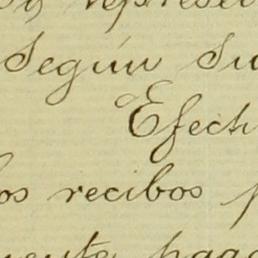 represe
Según su
Efecti
los recibos p
mente paga